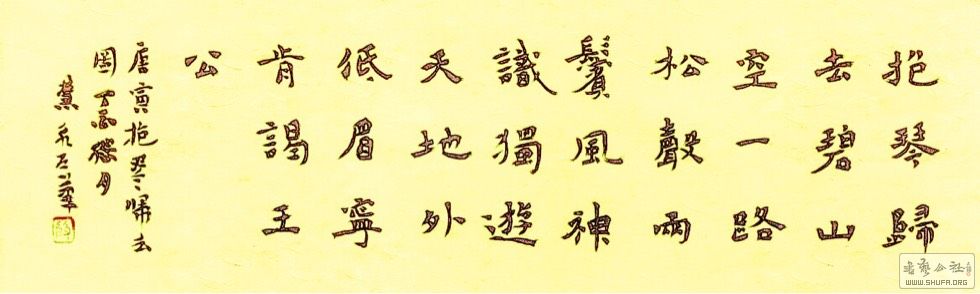 抱琴歸
去碧山
空一路
松聲兩
鬢風神
識獨遊
天地外
低眉寧
肯謁王
公
唐寅抱琴歸去
圖 月
书艺公社
WWW.SHUFA.ORG